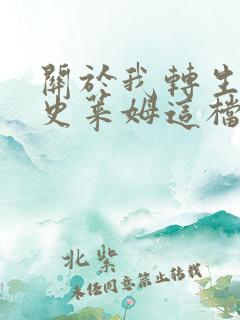 關於我轉生
史萊姆這檔
北紫
未經同意禁止轉載